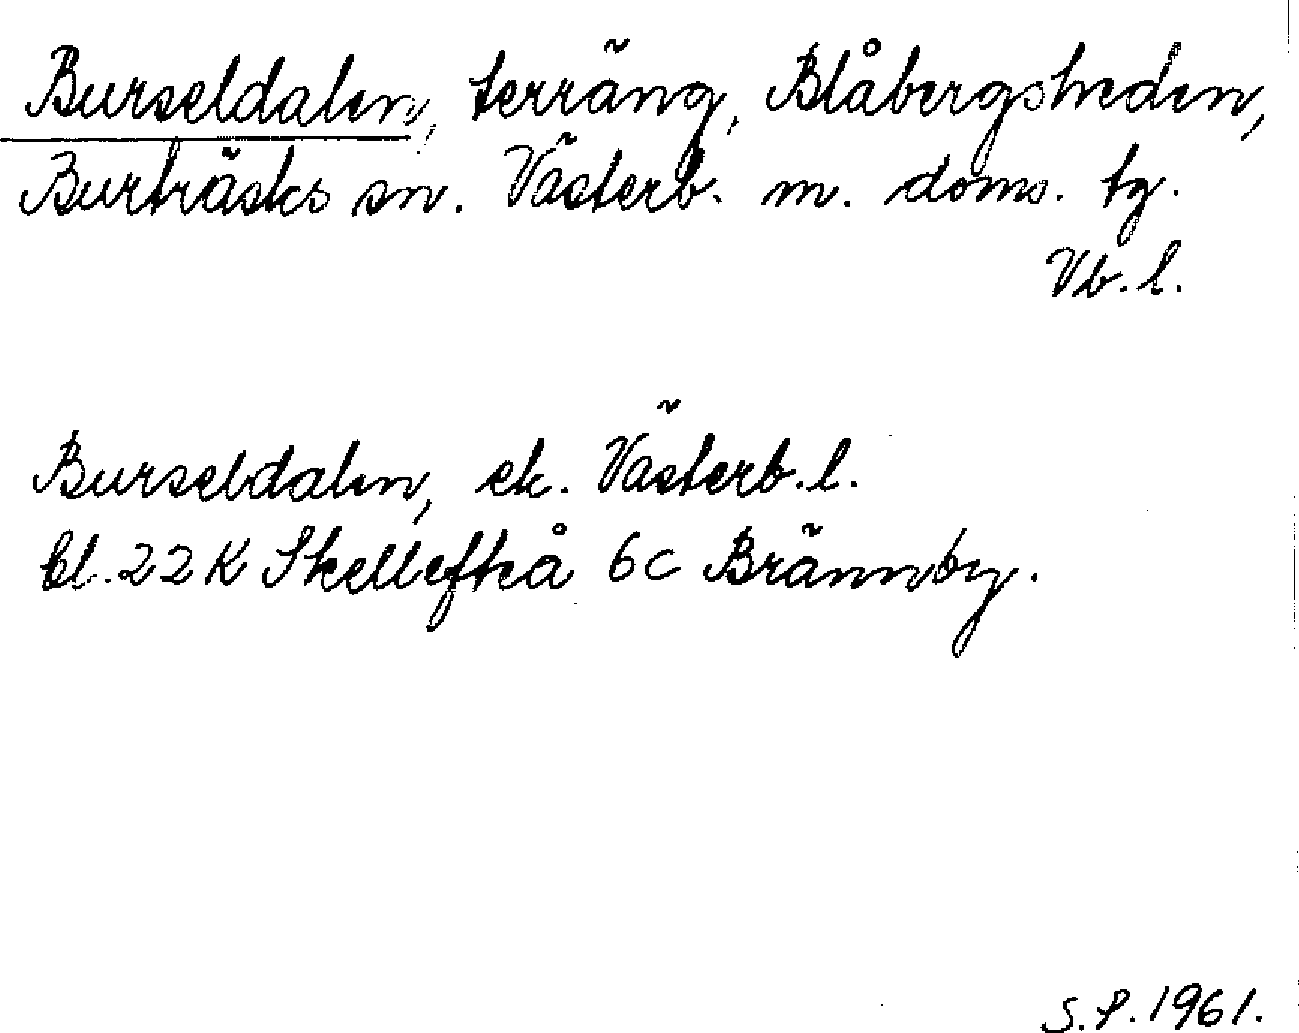 Burseldalen, terräng, Blåbergsheden,
Burträsks sn. Västerb. m. doms. tg.
Vb. l.
Burseldalen, ek. Västerb. l.
bl. 22 K Skellefteå 6c Brännby.
S.P. 1961.